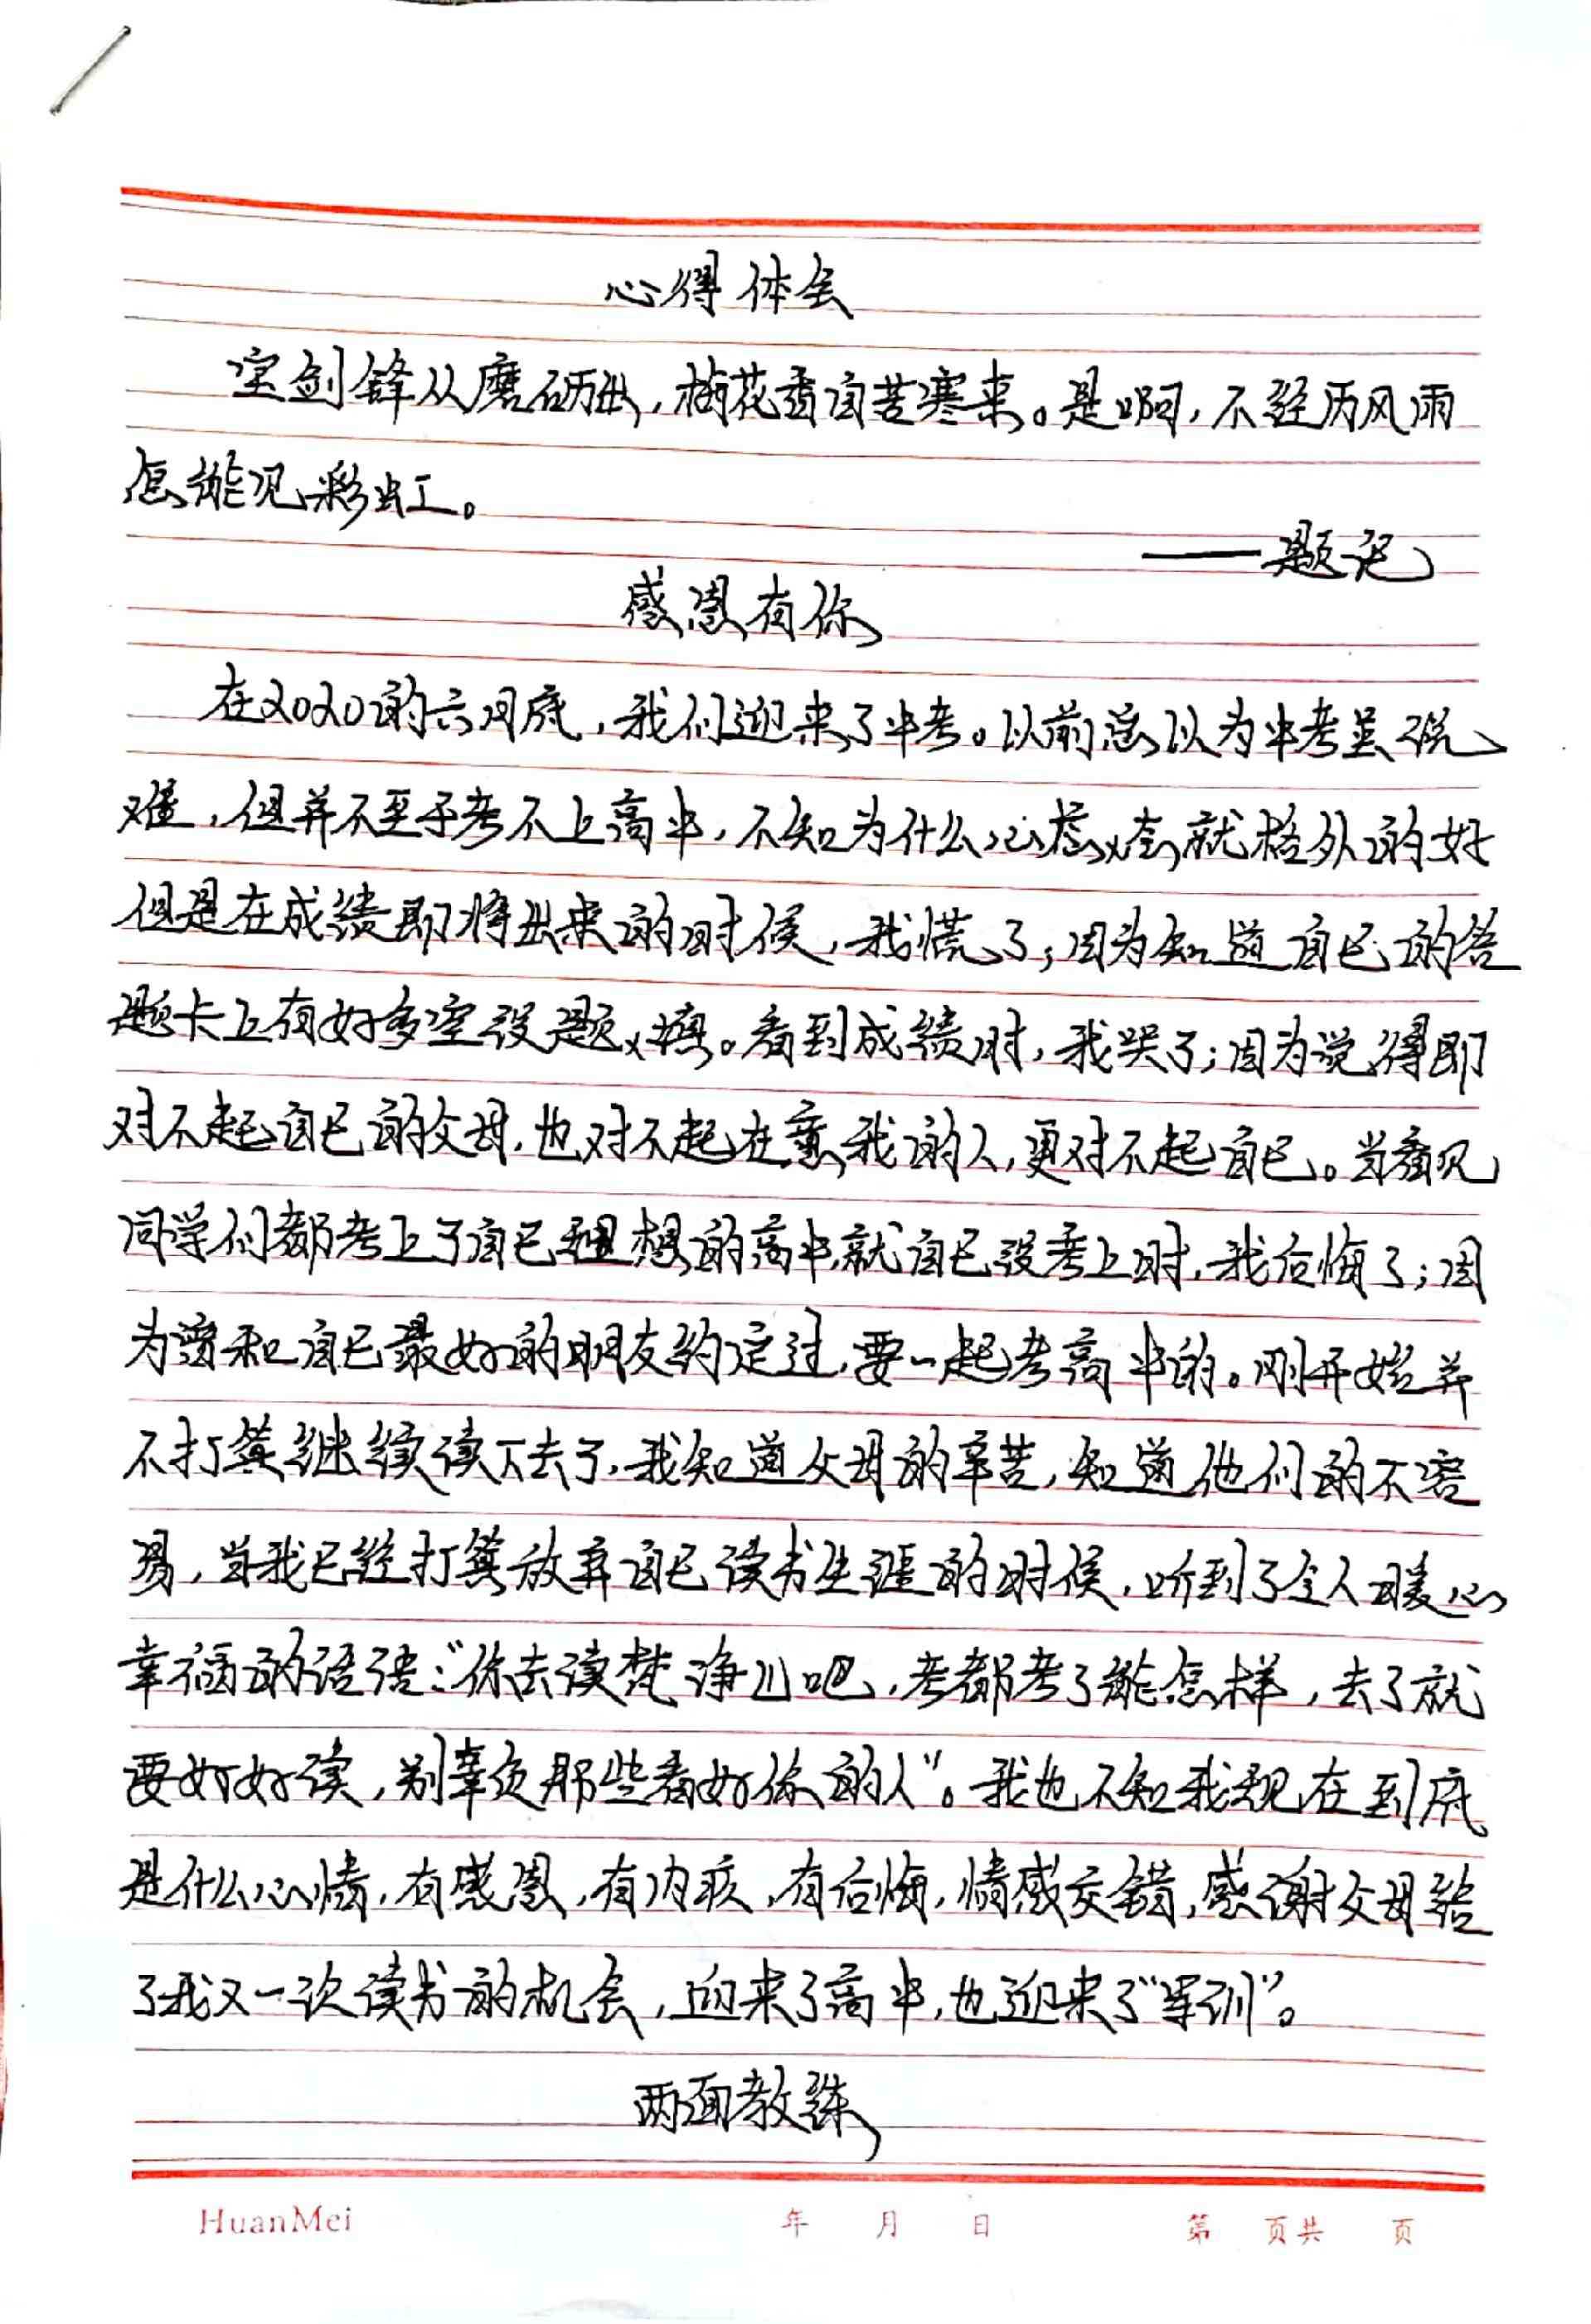 心得体会
宝剑锋从磨砺出，梅花香自苦寒来。是啊，不经历风雨
怎能见彩虹。
——题记
感恩有你
在2020的六月底，我们迎来了中考。以前总以为中考虽说
难，但并不至于考不上高中，不知为什么心态就格外的好
但是在成绩即将出来的时候，我慌了；因为知道自己的答
题卡上有好多空没题填。看到成绩时，我哭了；因为觉得即
对不起自己的父母，也对不起在意我的人，更对不起自己。当看见
同学们都考上了自己理想的高中，就自己没考上时，我后悔了；因
为曾和自己最好的朋友约定过，要一起考高中的。刚开始并
不打算继续读下去了，我知道父母的辛苦，知道他们的不容
易，当我已经打算放弃自己读书生涯的时候，听到了令人暖心
幸福的话语：“你去读梵净山吧，考都考了能怎样，去了就
要好好读，别辜负那些看好你的人”。我也不知我现在到底
是什么心情，有感恩，有内疚，有后悔，情感交错，感谢父母给
了我又一次读书的机会，迎来了高中，也迎来了“军训”。
两面教练
HuanMei 年 月 日 第 页共 页